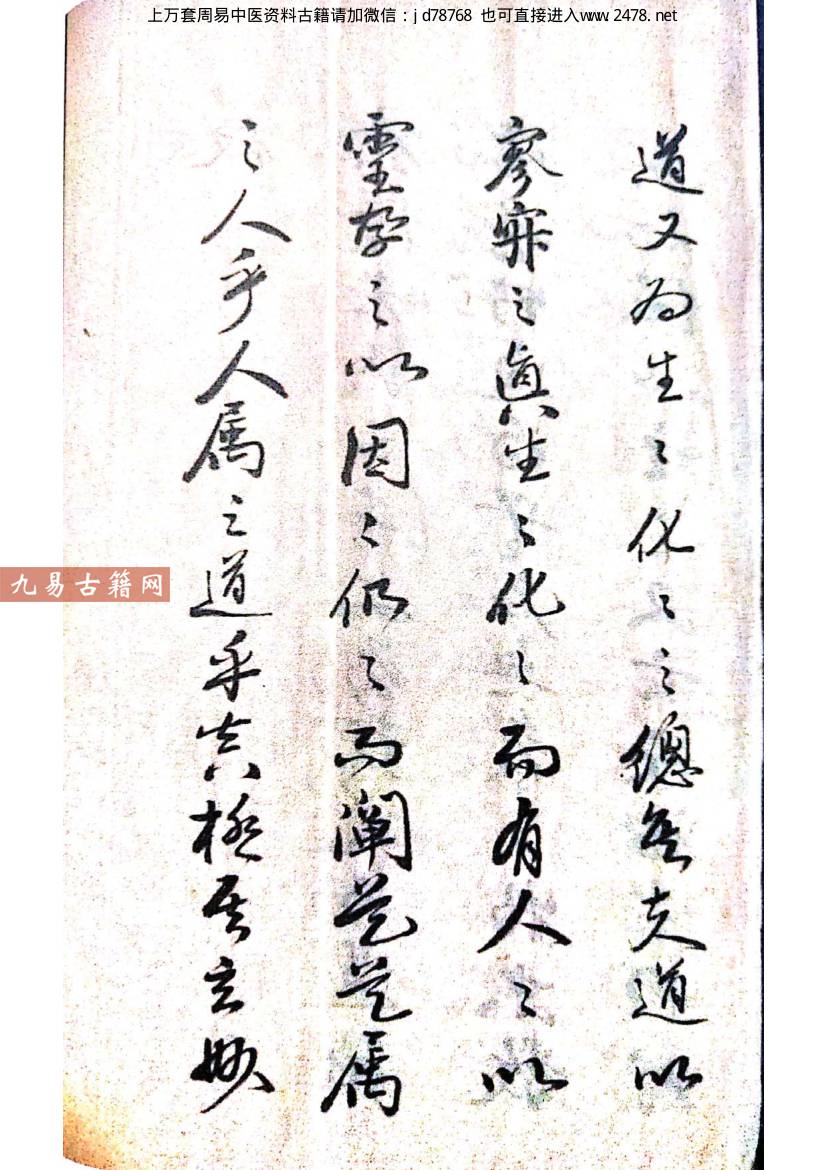 上万套周易中医资料古籍请加微信：jd78768 也可直接进入www.2478.net
道又为生〻化〻之總矣夫道以
寥寂之真生〻化〻而有人〻以
靈存之以因〻仍〻而闡是是属
之人乎人属之道乎真極其玄妙
九易古籍网